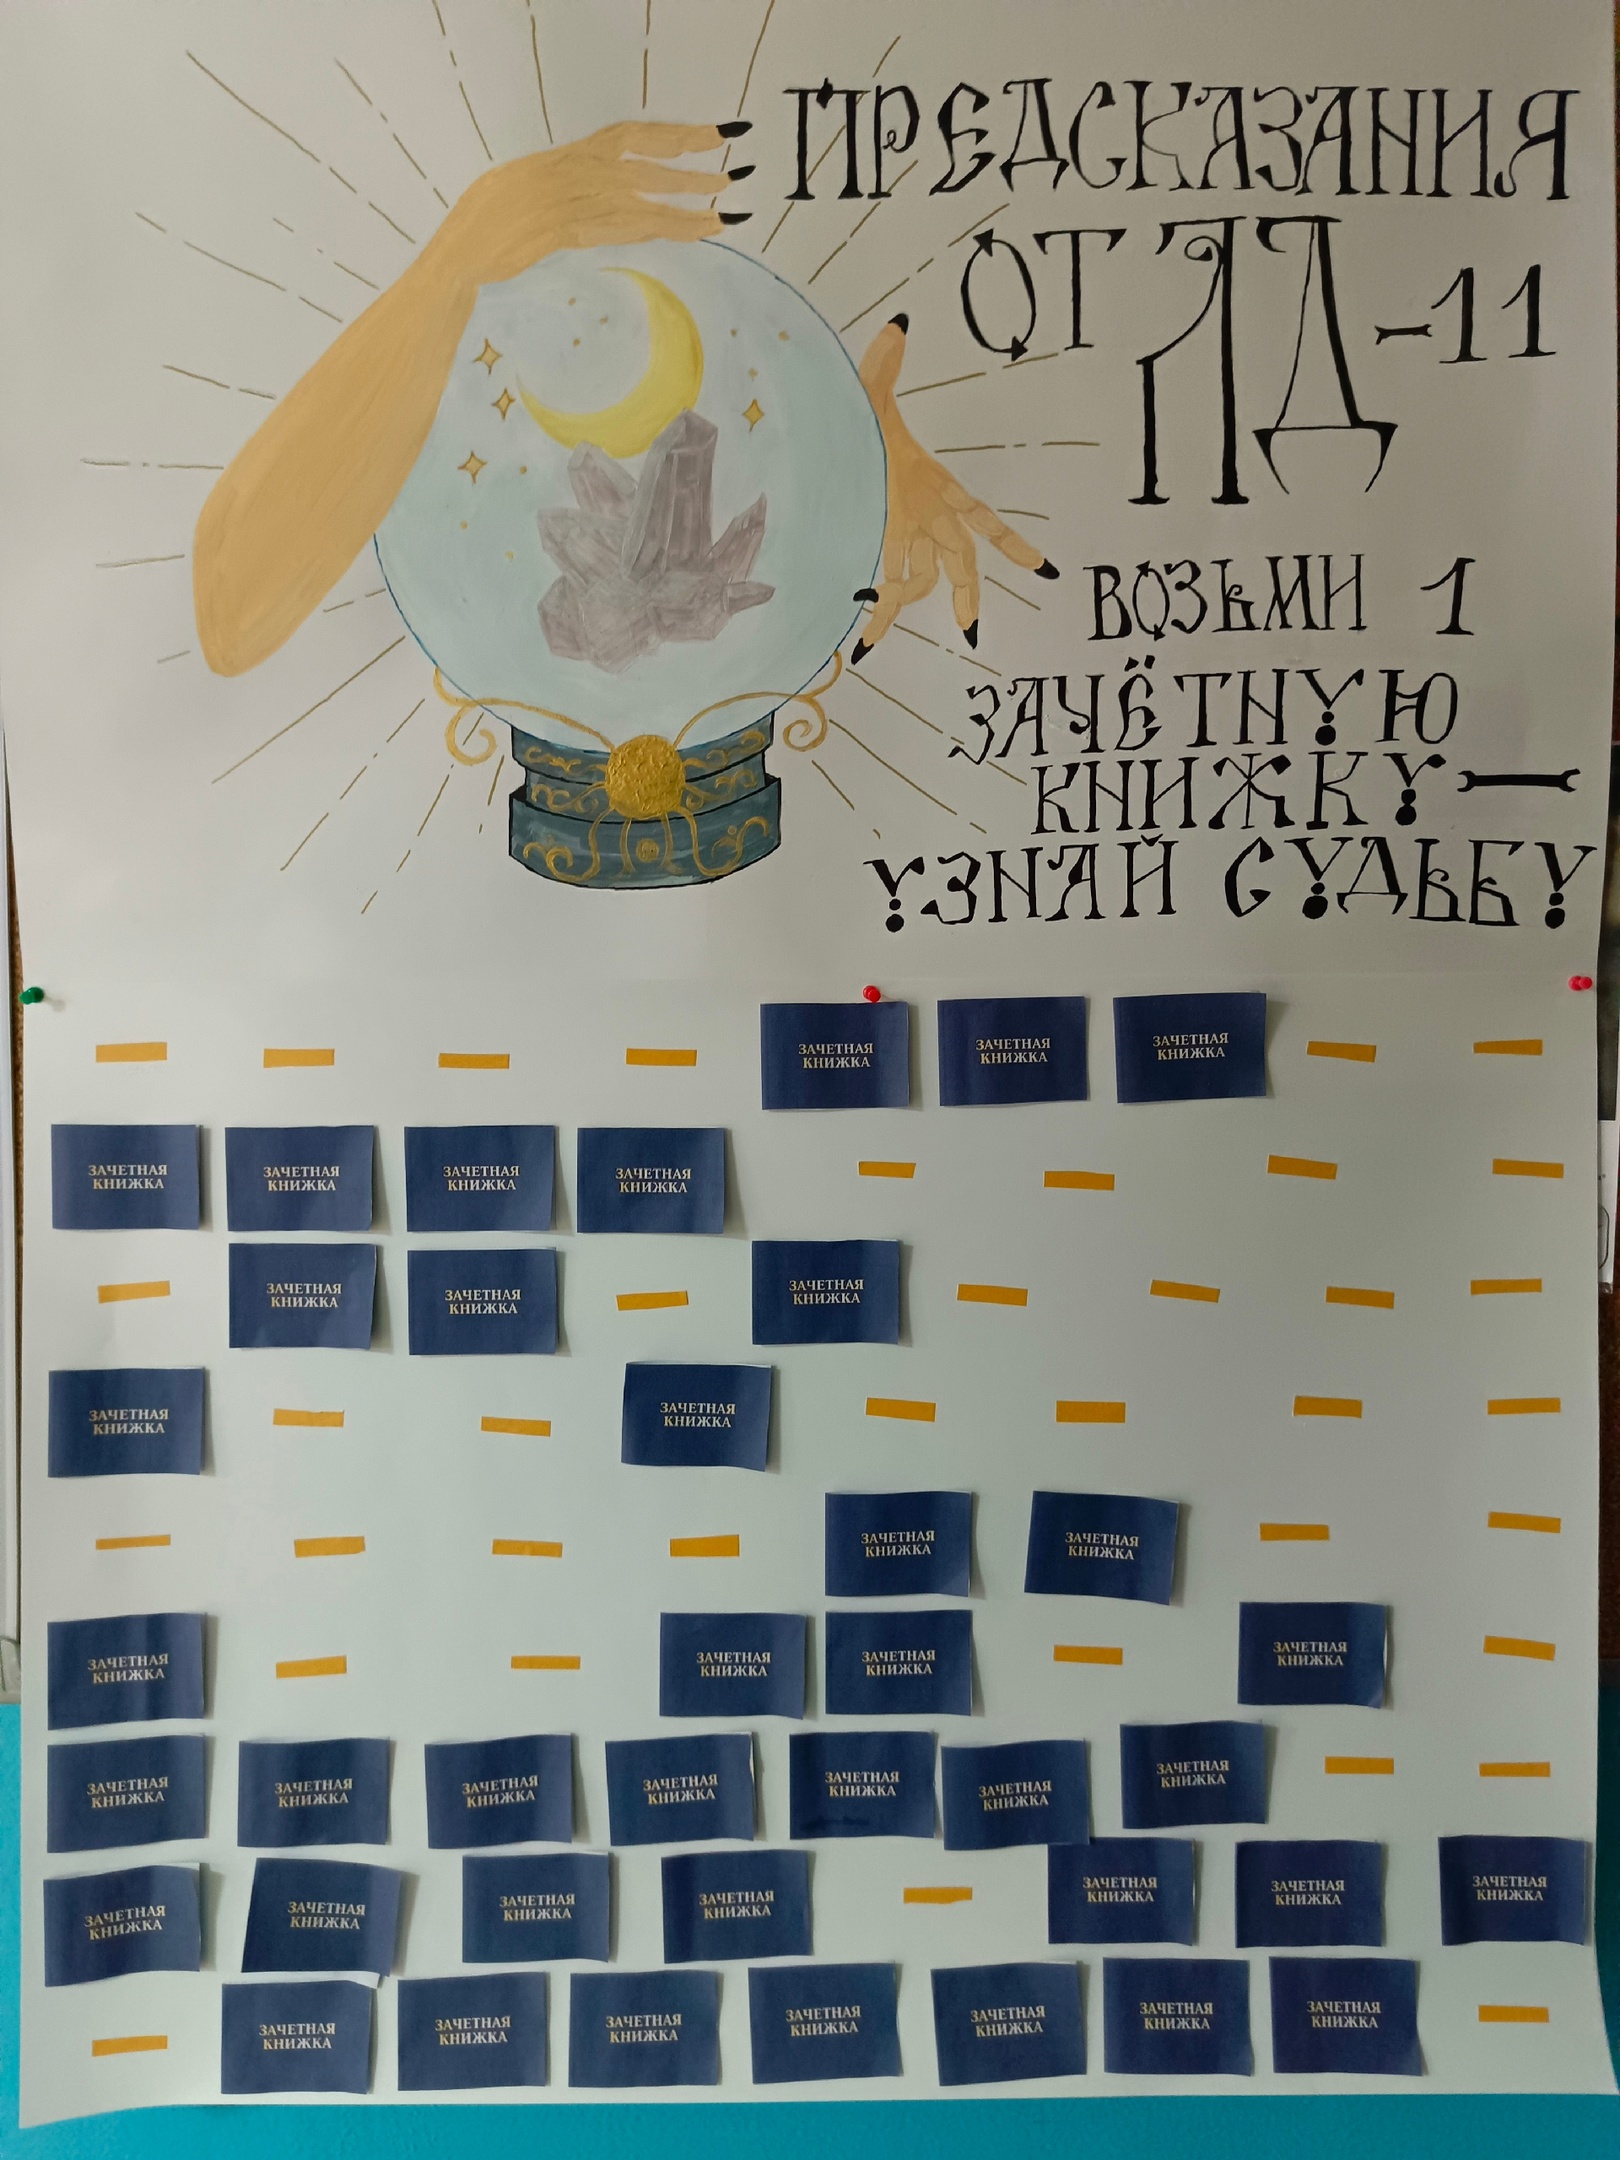 ПРЕДСКАЗАНИЯ
ОТ ЛД-11
ВОЗЬМИ 1
ЗАЧЁТНУЮ
КНИЖКУ —
УЗНАЙ СУДЬБУ
ЗАЧЕТНАЯ
КНИЖКА
ЗАЧЕТНАЯ
КНИЖКА
ЗАЧЕТНАЯ
КНИЖКА
ЗАЧЕТНАЯ
КНИЖКА
ЗАЧЕТНАЯ
КНИЖКА
ЗАЧЕТНАЯ
КНИЖКА
ЗАЧЕТНАЯ
КНИЖКА
ЗАЧЕТНАЯ
КНИЖКА
ЗАЧЕТНАЯ
КНИЖКА
ЗАЧЕТНАЯ
КНИЖКА
ЗАЧЕТНАЯ
КНИЖКА
ЗАЧЕТНАЯ
КНИЖКА
ЗАЧЕТНАЯ
КНИЖКА
ЗАЧЕТНАЯ
КНИЖКА
ЗАЧЕТНАЯ
КНИЖКА
ЗАЧЕТНАЯ
КНИЖКА
ЗАЧЕТНАЯ
КНИЖКА
ЗАЧЕТНАЯ
КНИЖКА
ЗАЧЕТНАЯ
КНИЖКА
ЗАЧЕТНАЯ
КНИЖКА
ЗАЧЕТНАЯ
КНИЖКА
ЗАЧЕТНАЯ
КНИЖКА
ЗАЧЕТНАЯ
КНИЖКА
ЗАЧЕТНАЯ
КНИЖКА
ЗАЧЕТНАЯ
КНИЖКА
ЗАЧЕТНАЯ
КНИЖКА
ЗАЧЕТНАЯ
КНИЖКА
ЗАЧЕТНАЯ
КНИЖКА
ЗАЧЕТНАЯ
КНИЖКА
ЗАЧЕТНАЯ
КНИЖКА
ЗАЧЕТНАЯ
КНИЖКА
ЗАЧЕТНАЯ
КНИЖКА
ЗАЧЕТНАЯ
КНИЖКА
ЗАЧЕТНАЯ
КНИЖКА
ЗАЧЕТНАЯ
КНИЖКА
ЗАЧЕТНАЯ
КНИЖКА
ЗАЧЕТНАЯ
КНИЖКА
ЗАЧЕТНАЯ
КНИЖКА
ЗАЧЕТНАЯ
КНИЖКА